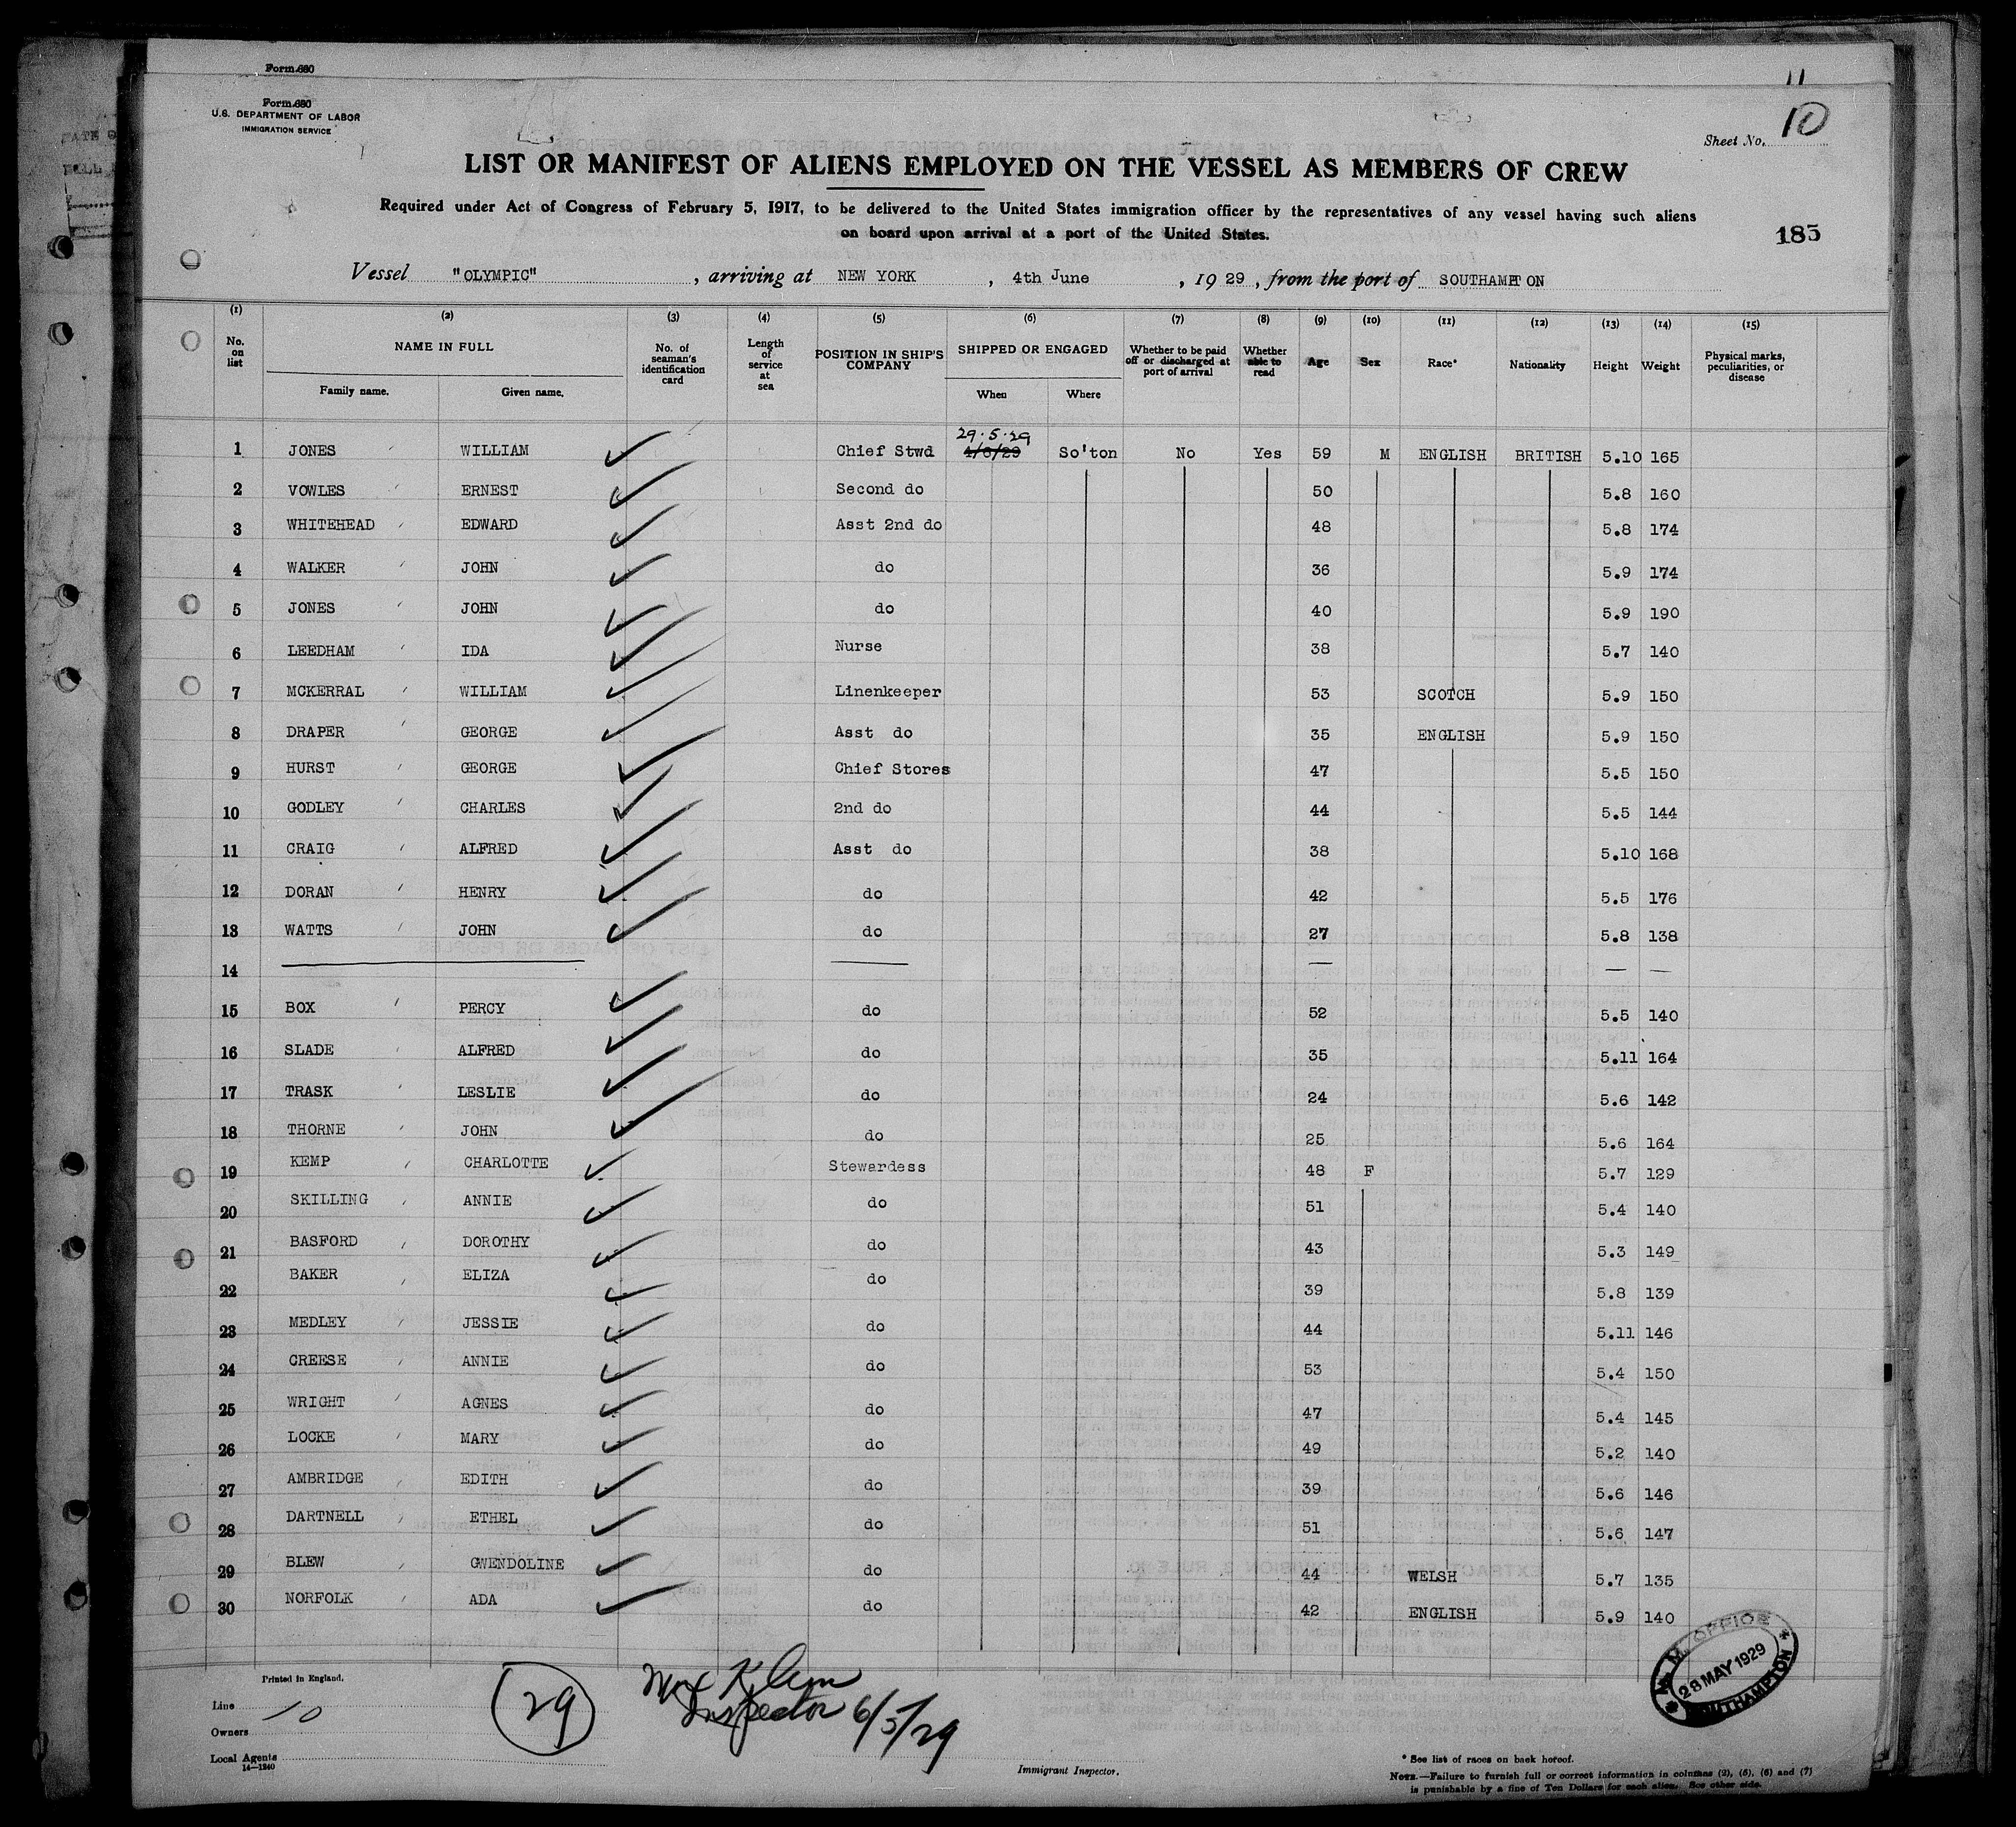 Form 680
11
Form 680
U.S. DEPARTMENT OF LABOR
IMMIGRATION SERVICE
Sheet No. 10
LIST OR MANIFEST OF ALIENS EMPLOYED ON THE VESSEL AS MEMBERS OF CREW
Required under Act of Congress of February 5, 1917, to be delivered to the United States immigration officer by the representatives of any vessel having such aliens
on board upon arrival at a port of the United States.
185
Vessel "OLYMPIC", arriving at NEW YORK, 4th June, 1929, from the port of SOUTHAMPTON
(1) (2) (3) (4) (5) (6) (7) (8) (9) (10) (11) (12) (13) (14) (15)
No. on list NAME IN FULL Family name. Given name. No. of seaman's identification card Length of service at sea POSITION IN SHIP'S COMPANY SHIPPED OR ENGAGED When Where Whether to be paid off or discharged at port of arrival Whether able to read Age Sex Race* Nationality Height Weight Physical marks, peculiarities, or disease
29.5.29
1 JONES WILLIAM Chief Stwd 4/6/29 So'ton No Yes 59 M ENGLISH BRITISH 5.10 165
2 VOWLES ERNEST Second do 50 5.8 160
3 WHITEHEAD EDWARD Asst 2nd do 48 5.8 174
4 WALKER JOHN do 36 5.9 174
5 JONES JOHN do 40 5.9 190
6 LEEDHAM IDA Nurse 38 5.7 140
7 MCKERRAL WILLIAM Linenkeeper 53 SCOTCH 5.9 150
8 DRAPER GEORGE Asst do 35 ENGLISH 5.9 150
9 HURST GEORGE Chief Stores 47 5.5 150
10 GODLEY CHARLES 2nd do 44 5.5 144
11 CRAIG ALFRED Asst do 38 5.10 168
12 DORAN HENRY do 42 5.5 176
13 WATTS JOHN do 27 5.8 138
14
15 BOX PERCY do 52 5.5 140
16 SLADE ALFRED do 35 5.11 164
17 TRASK LESLIE do 24 5.6 142
18 THORNE JOHN do 25 5.6 164
19 KEMP CHARLOTTE Stewardess 48 F 5.7 129
20 SKILLING ANNIE do 51 5.4 140
21 BASFORD DOROTHY do 43 5.3 149
22 BAKER ELIZA do 39 5.8 139
23 MEDLEY JESSIE do 44 5.11 146
24 CREESE ANNIE do 53 5.4 150
25 WRIGHT AGNES do 47 5.4 145
26 LOCKE MARY do 49 5.2 140
27 AMBRIDGE EDITH do 39 5.6 146
28 DARTNELL ETHEL do 51 5.6 147
29 BLEW GWENDOLINE do 44 WELSH 5.7 135
30 NORFOLK ADA do 42 ENGLISH 5.9 140
M. M. OFFICE
28 MAY 1929
SOUTHAMPTON
Printed in England.
Line 10
Owners
Local Agents
14—1240
29
Inspector 6/5/29
Immigrant Inspector.
* See list of races on back hereof.
NOTE.—Failure to furnish full or correct information in columns (2), (5), (6) and (7)
is punishable by a fine of Ten Dollars for each alien. See other side.